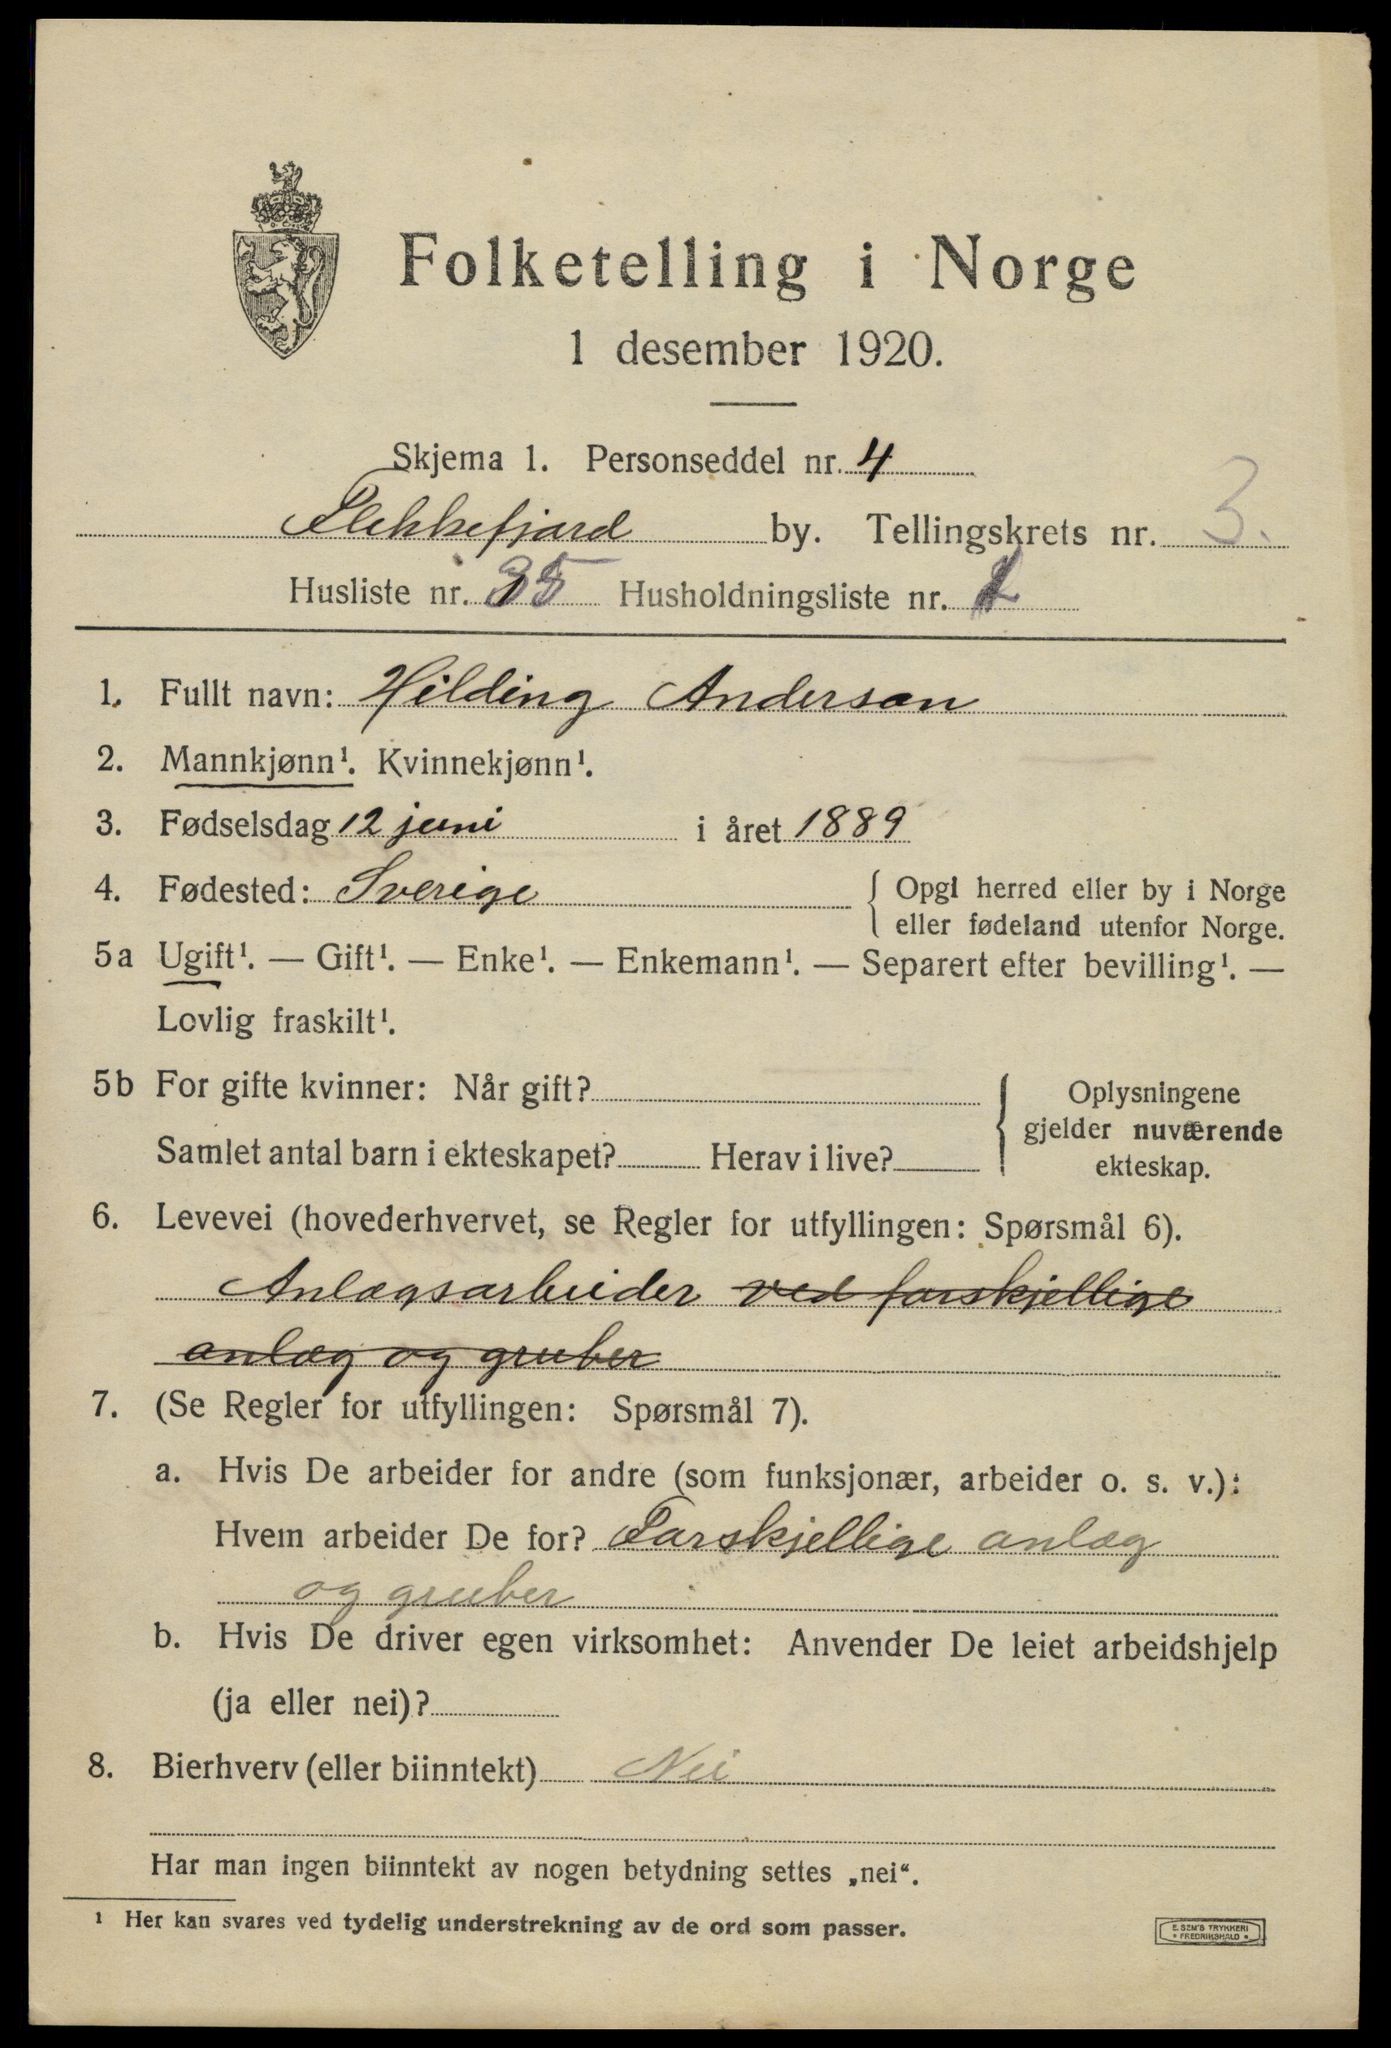 Folketelling i Norge
1 desember 1920.
Skjema 1. Personseddel nr. 4
Flekkefjord by. Tellingskrets nr. 3.
Husliste nr. 35 Husholdningsliste nr.
1. Fullt navn: Hilding Anderson
2. Mannkjønn¹. Kvinnekjønn¹.
3. Fødselsdag 12 juni i året 1889
4. Fødested: Sverige { Opgi herred eller by i Norge
eller fødeland utenfor Norge.
5a Ugift¹. — Gift¹. — Enke¹. — Enkemann¹. — Separert efter bevilling¹. —
Lovlig fraskilt¹.
5b For gifte kvinner: Når gift? { Oplysningene
gjelder nuværende
Samlet antal barn i ekteskapet? Herav i live? ekteskap.
6. Levevei (hovederhvervet, se Regler for utfyllingen: Spørsmål 6).
Anlægsarbeider ved forskjellige
anlæg og gruber
7. (Se Regler for utfyllingen: Spørsmål 7).
a. Hvis De arbeider for andre (som funksjonær, arbeider o. s. v.):
Hvem arbeider De for? Forskjellige anlæg
og gruber
b. Hvis De driver egen virksomhet: Anvender De leiet arbeidshjelp
(ja eller nei)?
8. Bierhverv (eller biinntekt) Nei
Har man ingen biinntekt av nogen betydning settes „nei“.
¹ Her kan svares ved tydelig understrekning av de ord som passer.
E. SEM'S TRYKKERI
• FREDRIKSHALD •